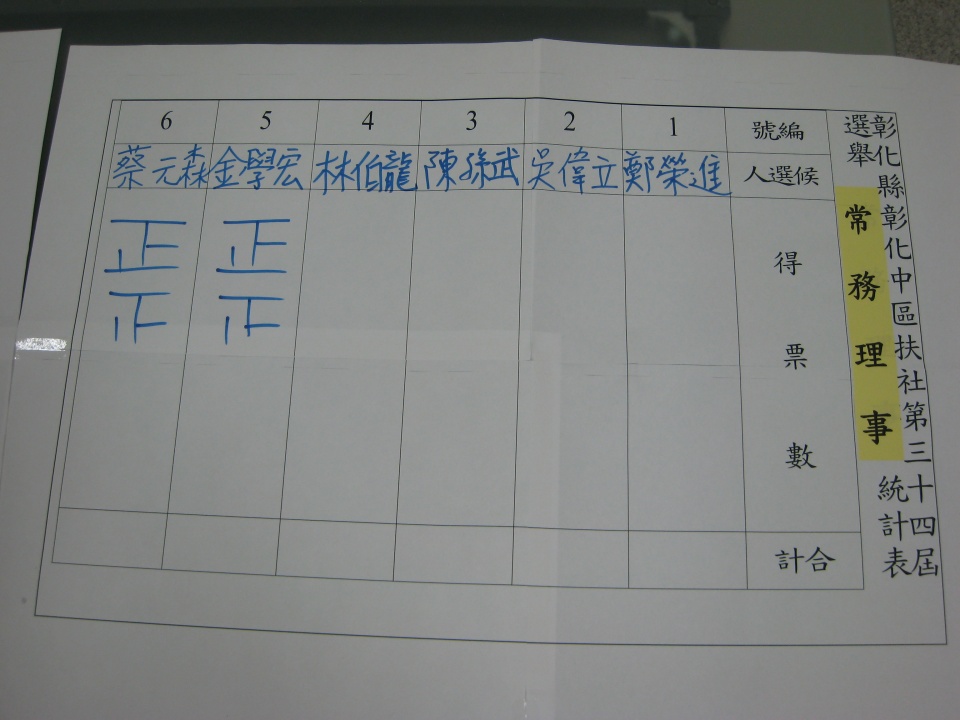 彰化縣彰化中區扶社第三十四屆
選舉
常務理事
統計表
編號 1 2 3 4 5 6
候選人 鄭榮進 吳偉立 陳孫武 林伯龍 金學宏 蔡元森
得票數
正 正
正 正
合計